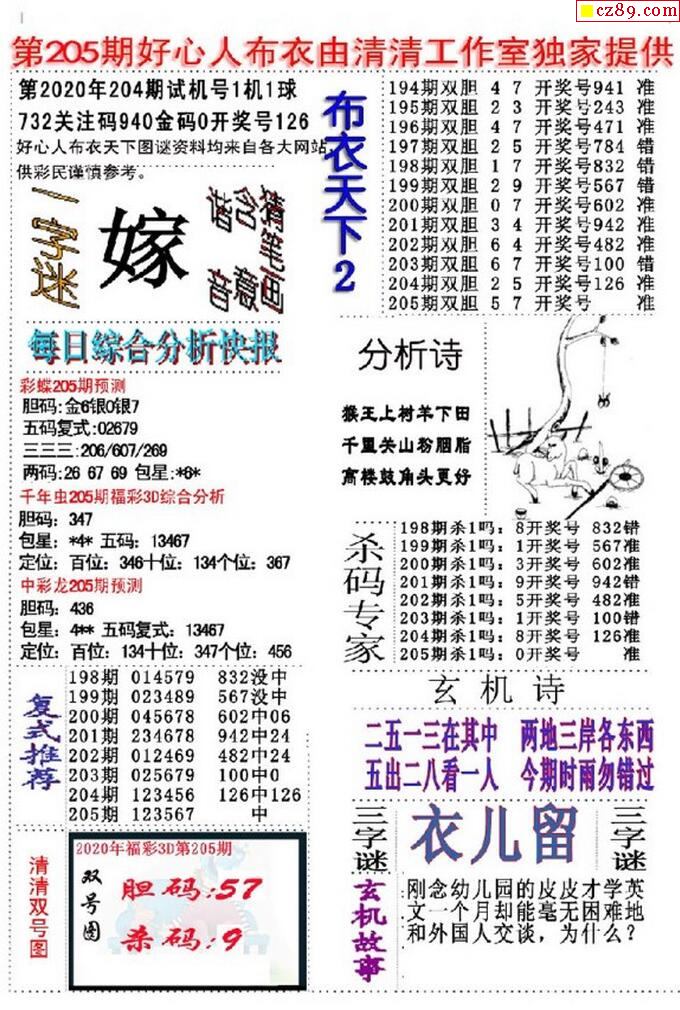 cz89.com
第205期好心人布衣由清清工作室独家提供
第2020年204期试机号1机1球
732关注码940金码0开奖号126
好心人布衣天下图谜资料均来自各大网站,
供彩民谨慎参考。
一字迷
嫁
谐含猜
音意笔画
每日综合分析快报
彩蝶205期预测
胆码:金6银0银7
五码复式:02679
三三三:206/607/269
两码:26 67 69 包星:*6*
千年虫205期福彩3D综合分析
胆码: 347
包星: *4* 五码: 13467
定位: 百位: 346十位: 134个位: 367
中彩龙205期预测
胆码: 436
包星: 4** 五码复式: 13467
定位: 百位: 134十位: 347个位: 456
复式推荐
198期 014579 832没中
199期 023489 567没中
200期 045678 602中06
201期 234678 942中24
202期 012469 482中24
203期 025679 100中0
204期 123456 126中126
205期 123567 中
清清双号图
2020年福彩3D第205期
双号图
胆码:57
杀码:9
布衣天下2
194期双胆 4 7 开奖号941 准
195期双胆 2 3 开奖号243 准
196期双胆 4 7 开奖号471 准
197期双胆 2 5 开奖号784 错
198期双胆 1 7 开奖号832 错
199期双胆 2 9 开奖号567 错
200期双胆 0 7 开奖号602 准
201期双胆 3 4 开奖号942 准
202期双胆 6 4 开奖号482 准
203期双胆 6 7 开奖号100 错
204期双胆 2 5 开奖号126 准
205期双胆 5 7 开奖号 准
分析诗
猴王上树羊下田
千里关山粉胭脂
高楼鼓角头更好
杀码专家
198期杀1吗: 8开奖号 832错
199期杀1吗: 1开奖号 567准
200期杀1吗: 3开奖号 602准
201期杀1吗: 9开奖号 942错
202期杀1吗: 5开奖号 482准
203期杀1吗: 1开奖号 100错
204期杀1吗: 8开奖号 126准
205期杀1吗: 0开奖号 准
玄机诗
二五一三在其中 两地三岸各东西
五出二八看一人 今期时雨勿错过
三字谜
衣儿留
三字谜
玄机故事
刚念幼儿园的皮皮才学英
文一个月却能毫无困难地
和外国人交谈，为什么？